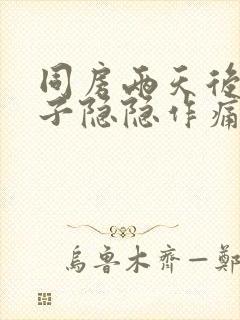 同房两天後
子隐隐作痛
乌鲁木齐—郑